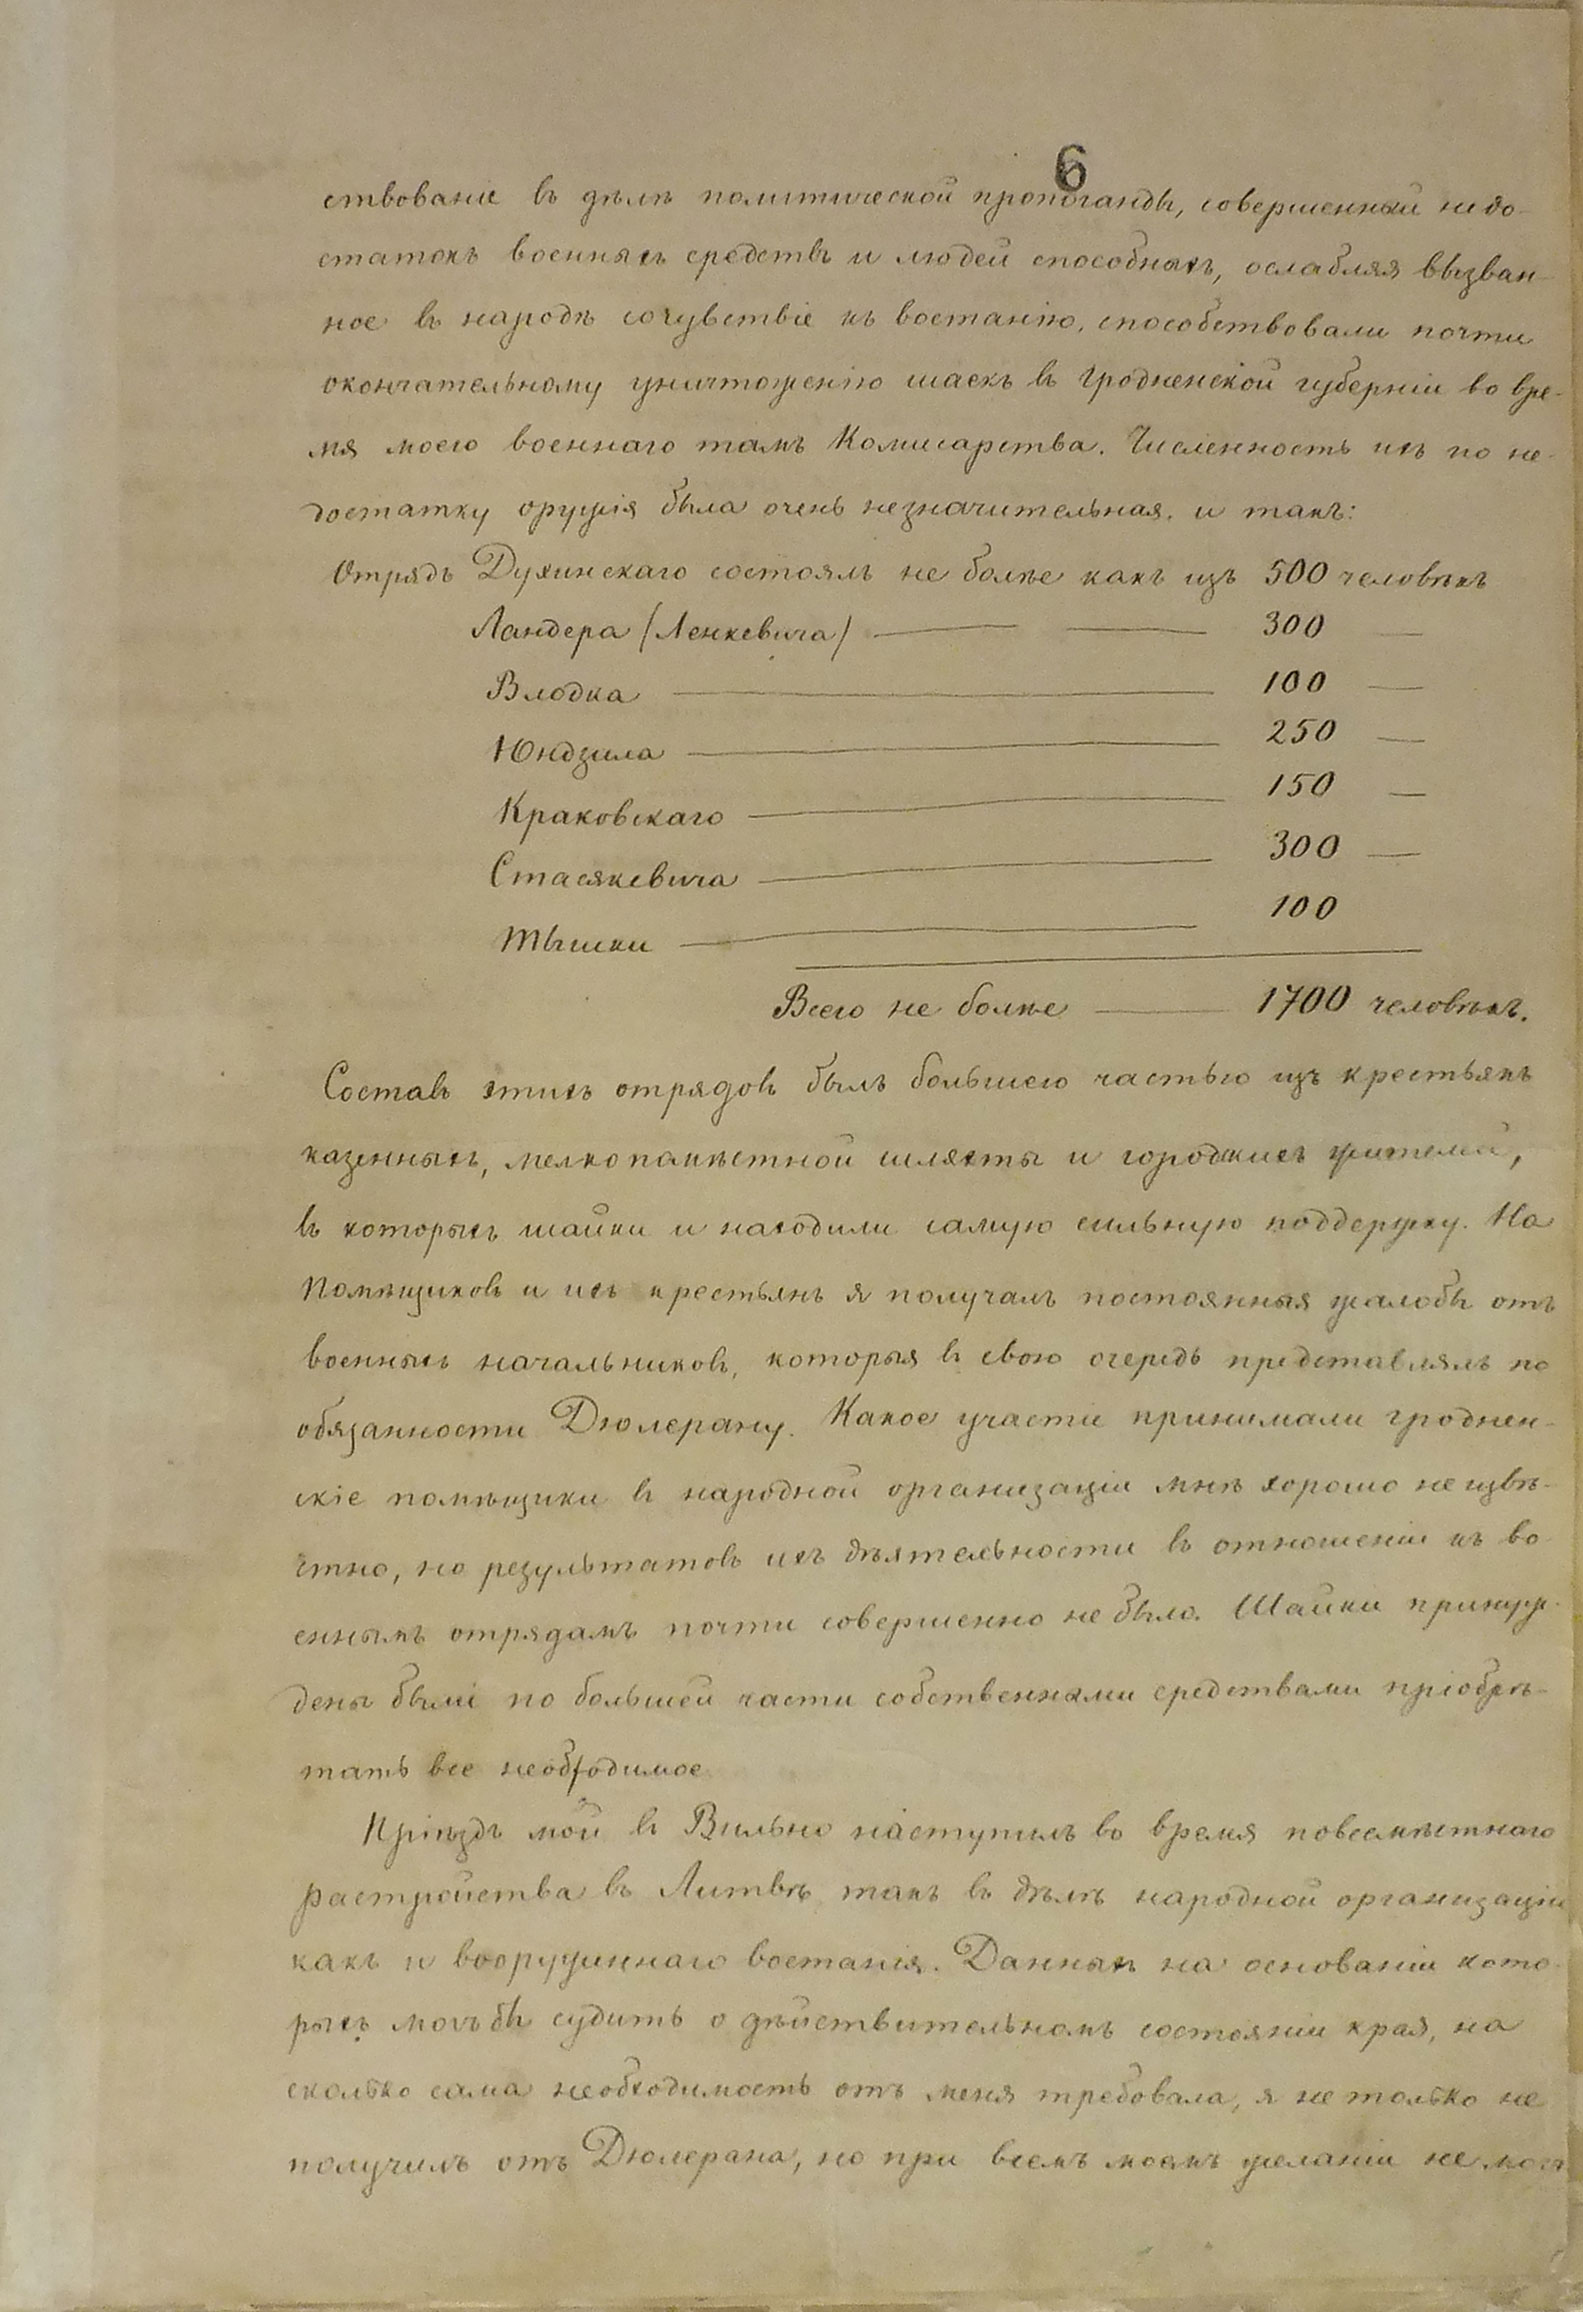 6
ствованіе въ дѣлѣ политической пропоганды, совершенный недо-
статокъ военныхъ средствъ и людей способныхъ, ослабляя вызван-
ное въ народѣ сочувствіе къ востанію, способствовали почти
окончательному уничтоженію шаекъ въ Гродненской губерніи во вре-
мя моего военнаго тамъ Комисарства. Численность ихъ по не-
достатку оружія была очень незначительная. и такъ:
Отрядъ Духинскаго состоялъ не болѣе какъ изъ 500 человѣкъ
Ландера /Ленкевича/ — — 300 —
Влодка — 100 —
Юндзила — 250 —
Краковскаго — 150 —
Стасякевича — 300 —
Мышки — 100
Всего не болѣе — 1700 человѣкъ.
Составъ этихъ отрядовъ былъ большею частью изъ крестьянъ
казенныхъ, мелкопомѣстной шляхты и городскихъ жителей,
въ которыхъ шайки и находили самую сильную поддержку. На
Помѣщиковъ и ихъ крестьянъ я получалъ постоянныя жалобы отъ
военныхъ начальниковъ, которыя въ свою очередь представлялъ по
обязанности Дюлерану. Какое участіе принимали гроднен-
скіе помѣщики въ народной организаціи мнѣ хорошо неизвѣ-
стно, но результатовъ ихъ дѣятельности въ отношеніи къ во-
еннымъ отрядамъ почти совершенно не было. Шайки принуж-
дены были по большей части собственными средствами пріобрѣ-
тать все необходимое.
Пріѣздъ мой въ Вильно наступилъ во время повсемѣстнаго
растройства въ Литвѣ такъ въ дѣлѣ народной организаціи
какъ и вооруженнаго востанія. Данныхъ на основаніи кото-
рыхъ могъ бы судить о дѣйствительномъ состояніи края, на
сколько сама необходимость отъ меня требовала, я не только не
получилъ отъ Дюлерана, но при всемъ моемъ желаніи не могъ